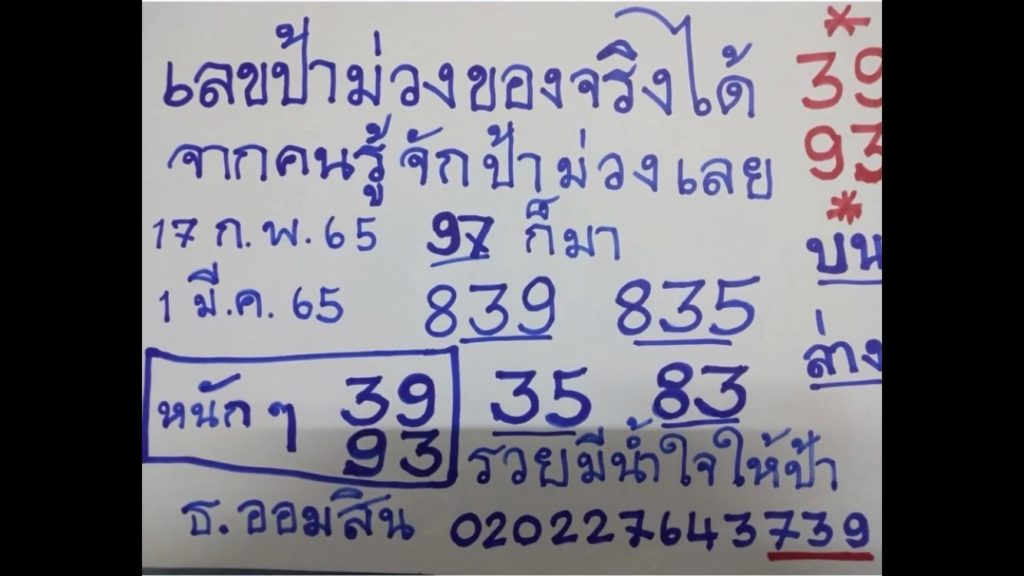 เลขป้าม่วงของจริงได้
จากคนรู้จักป้าม่วงเลย
17 ก.พ. 65 97 ก็มา
1 มี.ค. 65 839 835
หนักๆ 39 35 83
93
รวยมีน้ำใจให้ป้า
ธ.ออมสิน 020227643739
*
39
93
*
บน
ล่าง